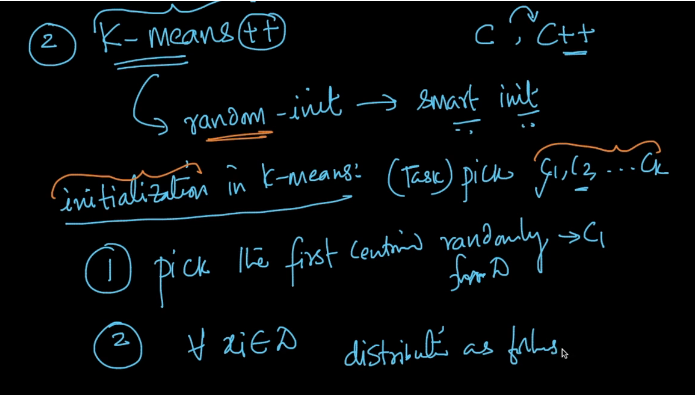 ② K-means++ C, C++
random-init → smart init
initialization in K-means: (Task) pick C1, C2, ... Ck
① pick the first centroid randomly → C1
from D
② ∀ xi ∈ D distribute as follows